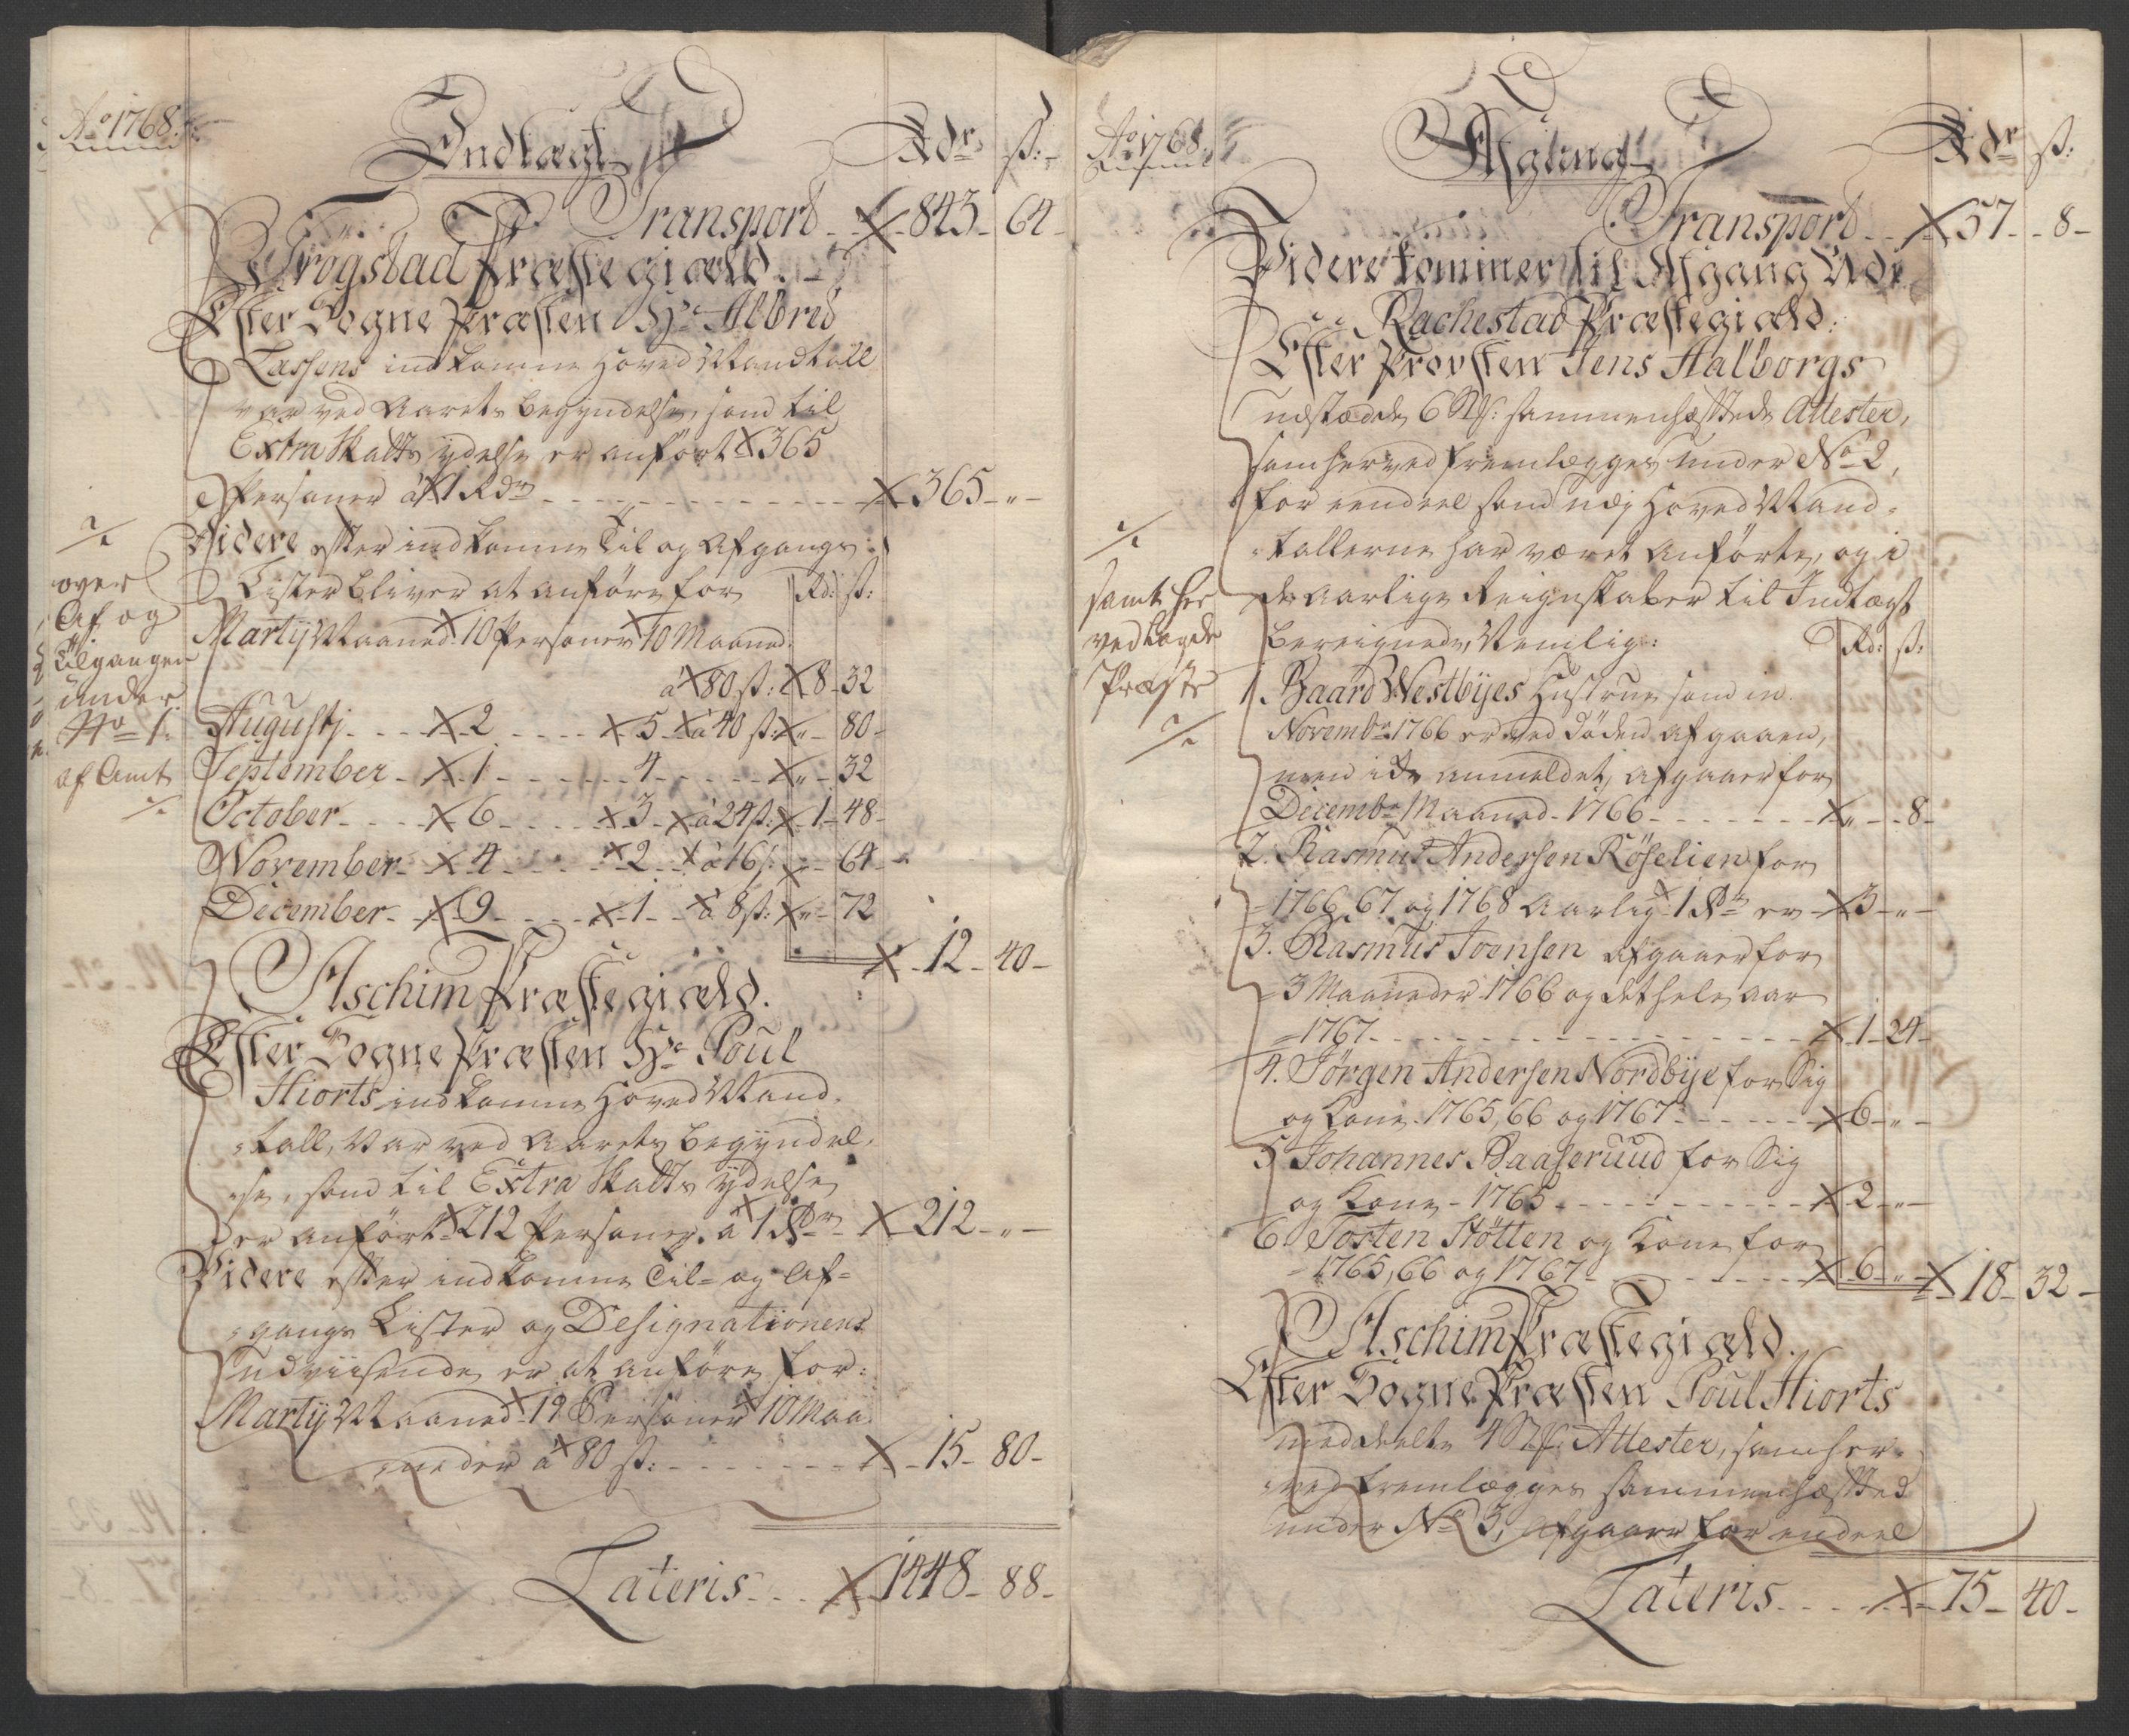 Ao 1768.
Indtægt
Rdr ß:
Transport X 843 - 64 -
Trøgstad Præstegiæld.
Efter Sogne Præsten Hr. Albred
Lassens indkomne Hoved Mandtall
var ved Aarets begyndelse, som til
Extra Skatts ydelse er anført X 365
Personer á X 1 Rdr X 365 - " -
Videre efter indkomne Til og Afgangs
Lister bliver at anføre for Rd: ß:
Martÿ Maaned X 10 Personer X 10 Maaned.
á X 80 ß: X 8 - 32
Augustj X 2 X 5 X á 40 ß: X " - 80 -
September X 1 4 X " - 32
October X 6 X 3 X á 24 ß: X 1 - 48 -
November X 4 X 2 X á 16 ß: X " - 64 -
December X 9 X 1 X á 8 ß: X " - 72
X 12 - 40 -
Aschim Præstegiæld.
Efter Sogne Præsten Hr. Poul
Hiorts indkomne Hoved Mand-
tall, var ved Aarets Begÿndel-
se, som til Extra Skatts ÿdelse
er anført X 212 Personer á X 1 Rdr X 212 - " -
Videre efter indkomne Til- og Af-
gangs Lister og Designationens
udviisende er at anføre for:
Martÿ Maaned X 19 Personer X 10 Maa-
neder á X 80 ß: X 15 - 80 -
Lateris X 1448 - 88 -
over
Af og
tilgangen
under
No 1.
af Amt
Ao 1768.
Afgang
Rdr ß:
Transport X 57 - 8 -
Videre kommer til Afgang Udi
Rachestad Præstegiæld:
Efter Provsten Jens Aalborgs
udstædde 6 St: sammenhæftede Attester,
som herved fremlægges under No 2,
for eendeel som udj Hoved Mand-
tallerne har været anførte, og i
de aarlige Reignskaber til Indtægt
bereignede, Nemlig: Rd: ß:
1. Baard Westbÿes Hustrue som in
Novembr 1766 er ved døden afgaaen,
men icke anmeldet, afgaaer for
Decembr Maaned 1766 X " - 8 -
2. Rasmus Andersen Røselien for
1766, 67 og 1768 aarlig X 1 Rdr er X 3 - " -
3. Rasmus Joensen afgaaer for
3 Maaneder 1766 og det hele aar
1767 X 1 - 24 -
4. Jørgen Andersen Nordbÿe for Sig
og Kone 1765, 66 og 1767 X 6 - " -
5 Johannes Baaserüud for Sig
og Kone - 1765 X 2 - " -
6. Tosten Støtten og Kone for
1765, 66 og 1767 X 6 - " - X 18 - 32 -
Aschim Præstegiæld.
Efter Sogne Præsten Poul Hiorts
meddeelte 4 St: Attester, som her-
ved fremlægges sammenhæfted
under No 3, afgaaer for endeel
Lateris X 75 - 40 -
samt her
vedlagde